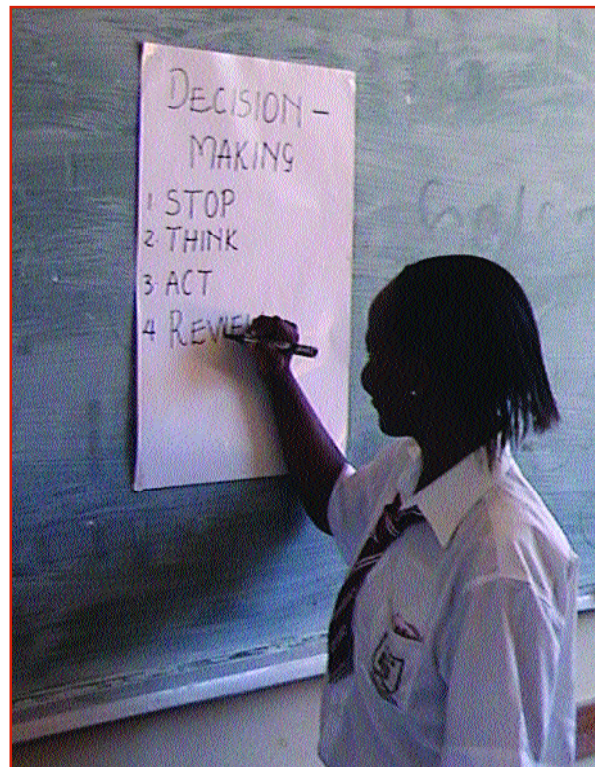 DECISION -
MAKING
1 STOP
2 THINK
3 ACT
4 REVIEW